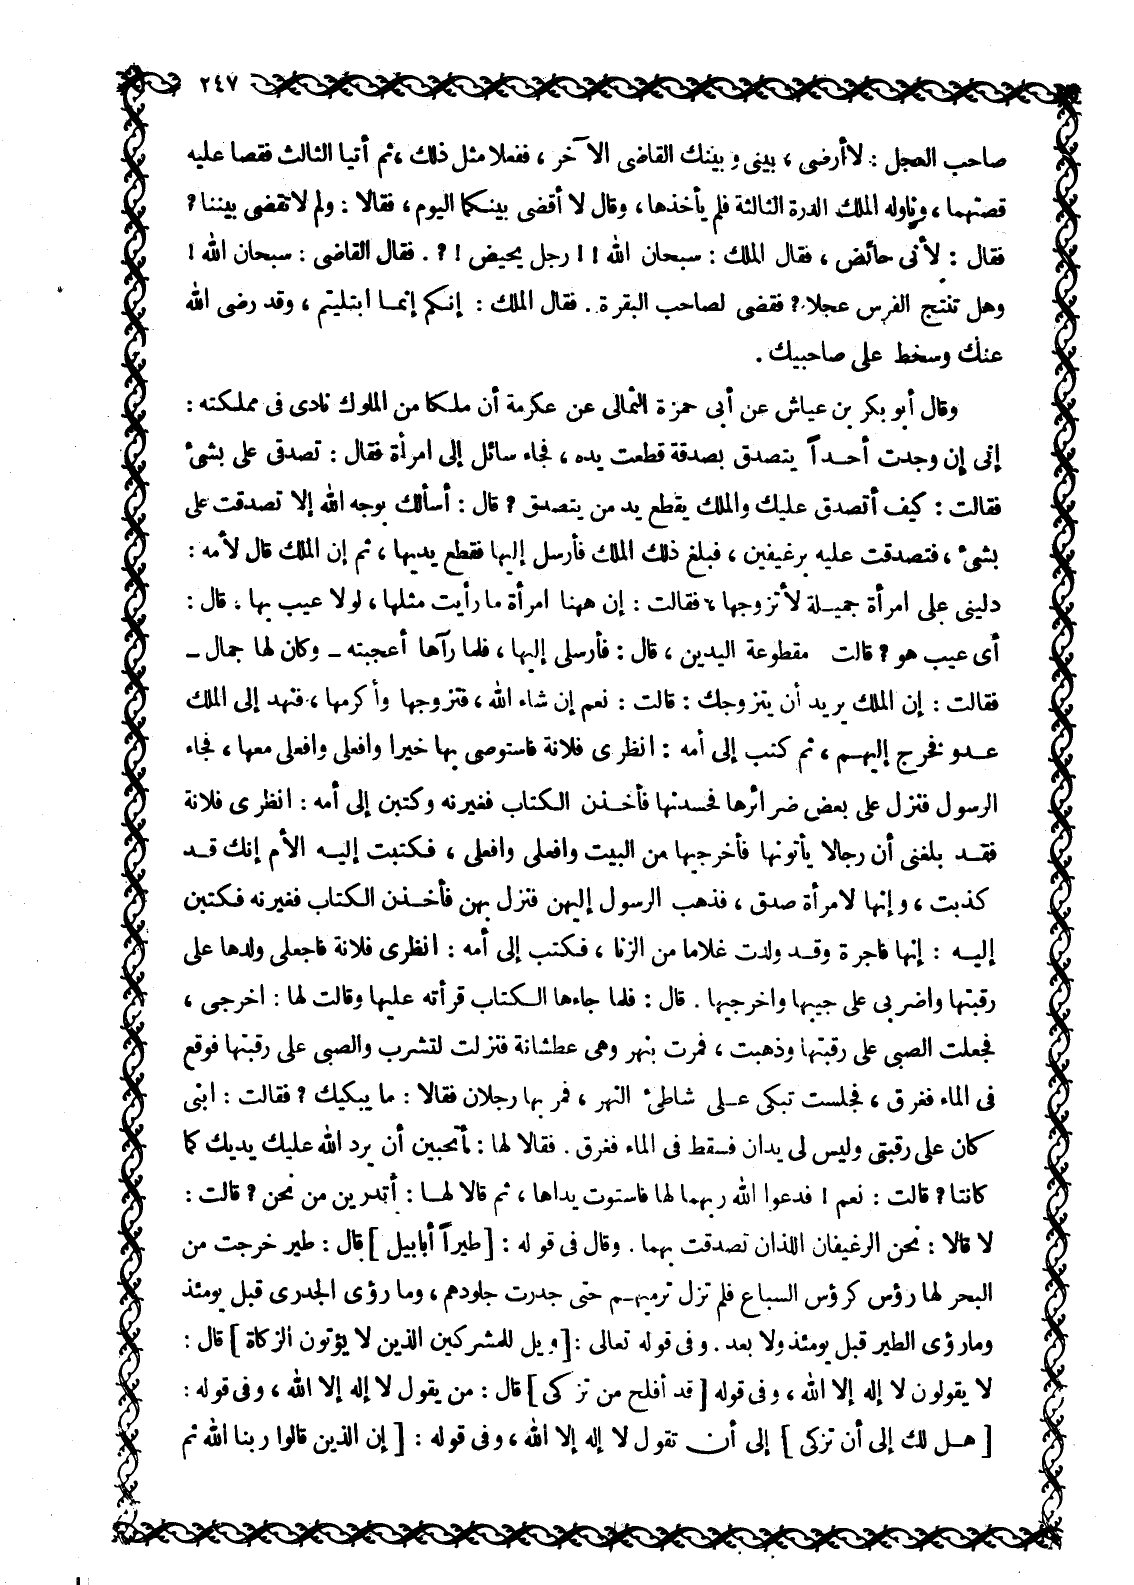 ٢٤٧
صاحب العجل : لا أرضى ، بينى وبينك القاضى الآخر ، ففعلا مثل ذلك ، ثم أتيا الثالث فقصا عليه
قصتهما ، وناوله الملك الدرة الثالثة فلم يأخذها ، وقال لا أقضى بينكما اليوم ، فقالا : ولم لا تقضى بيننا ?
فقال : لأنى حائض ، فقال الملك : سبحان الله ! ! رجل يحيض ! ? . فقال القاضى : سبحان الله !
وهل تنتج الفرس عجلا ? فقضى لصاحب البقرة . فقال الملك : إنكم إنما ابتليتم ، وقد رضى الله
عنك وسخط على صاحبيك .
وقال أبو بكر بن عياش عن أبى حمزة الثمالى عن عكرمة أن ملكا من الملوك نادى فى مملكته :
إنى إن وجدت أحداً يتصدق بصدقة قطعت يده ، فجاء سائل إلى امرأة فقال : تصدقى على بشىء
فقالت : كيف أتصدق عليك والملك يقطع يد من يتصدق ? قال : أسألك بوجه الله إلا تصدقت على
بشىء ، فتصدقت عليه برغيفين ، فبلغ ذلك الملك فأرسل إليها فقطع يديها ، ثم إن الملك قال لأمه :
دلينى على امرأة جميلة لأتزوجها ، فقالت : إن ههنا امرأة ما رأيت مثلها ، لولا عيب بها ، قال :
أى عيب هو ? قالت مقطوعة اليدين ، قال : فأرسلى إليها ، فلما رآها أعجبته – وكان لها جمال –
فقالت : إن الملك يريد أن يتزوجك : قالت : نعم إن شاء الله ، فتزوجها وأكرمها ، فنهد إلى الملك
عدو فخرج إليهم ، ثم كتب إلى أمه : انظرى فلانة فاستوصى بها خيرا وافعلى وافعلى معها ، فجاء
الرسول فنزل على بعض ضرائرها فحسدنها فأخذن الكتاب فغيرنه وكتبن إلى أمه : انظرى فلانة
فقد بلغنى أن رجالا يأتونها فأخرجيها من البيت وافعلى وافعلى ، فكتبت إليه الأم إنك قد
كذبت ، وإنها لامرأة صدق ، فذهب الرسول إليهن فنزل بهن فأخذن الكتاب فغيرنه فكتبن
إليه : إنها فاجرة وقد ولدت غلاما من الزنا ، فكتب إلى أمه : انظرى فلانة فاجعلى ولدها على
رقبتها واضربى على جيبها واخرجيها . قال : فلما جاءها الكتاب قرأته عليها وقالت لها : اخرجى ،
فجعلت الصبى على رقبتها وذهبت ، فمرت بنهر وهى عطشانة فنزلت لتشرب والصبى على رقبتها فوقع
فى الماء فغرق ، فجلست تبكى على شاطىء النهر ، فمر بها رجلان فقالا : ما يبكيك ? فقالت : ابنى
كان على رقبتى وليس لى يدان فسقط فى الماء فغرق . فقالا لها : أتحبين أن يرد الله عليك يديك كما
كانتا ? قالت : نعم ! فدعوا الله ربهما لها فاستوت يداها ، ثم قالا لها : أتدرين من نحن ? قالت :
لا قالا : نحن الرغيفان اللذان تصدقت بهما . وقال فى قوله : [ طيراً أبابيل ] قال : طير خرجت من
البحر لها رؤس كرؤس السباع فلم تزل ترميهم حتى جدرت جلودهم ، وما رؤى الجدرى قبل يومئذ
وما رؤى الطير قبل يومئذ ولا بعد . وفى قوله تعالى : [ ويل للمشركين الذين لا يؤتون الزكاة ] قال :
لا يقولون لا إله إلا الله ، وفى قوله [ قد أفلح من تزكى ] قال : من يقول لا إله إلا الله ، وفى قوله :
[ هل لك إلى أن تزكى ] إلى أن تقول لا إله إلا الله ، وفى قوله : [ إن الذين قالوا ربنا الله ثم